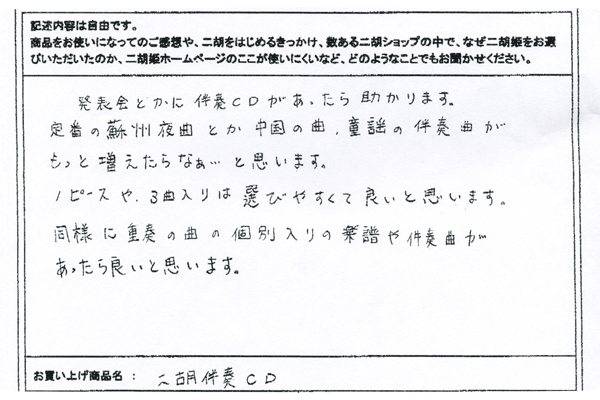 記述内容は自由です。
商品をお使いになってのご感想や、二胡をはじめるきっかけ、数ある二胡ショップの中で、なぜ二胡姫をお選
びいただいたのか、二胡姫ホームページのここが使いにくいなど、どのようなことでもお聞かせください。
発表会とかに伴奏CDがあったら助かります。
定番の蘇州夜曲とか中国の曲、童謡の伴奏曲が
もっと増えたらなぁ…と思います。
1ピースや、3曲入りは選びやすくて良いと思います。
同様に重奏の曲の個別入りの楽譜や伴奏曲が
あったら良いと思います。
お買い上げ商品名： 二胡伴奏CD